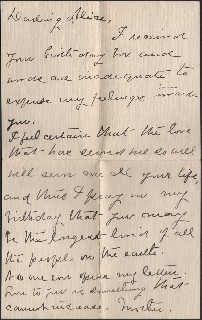 Darling Alice,
I received
your birthday box and
words are inadequate to
express my feelings towards
you.
I feel certain that the love
that has served me so well
will serve me all your life,
and this I pray on my
birthday that you may
be the longest lived of all
the people on the earth.
As we can give my letter.
Love to you is something that
cannot increase. Mother.